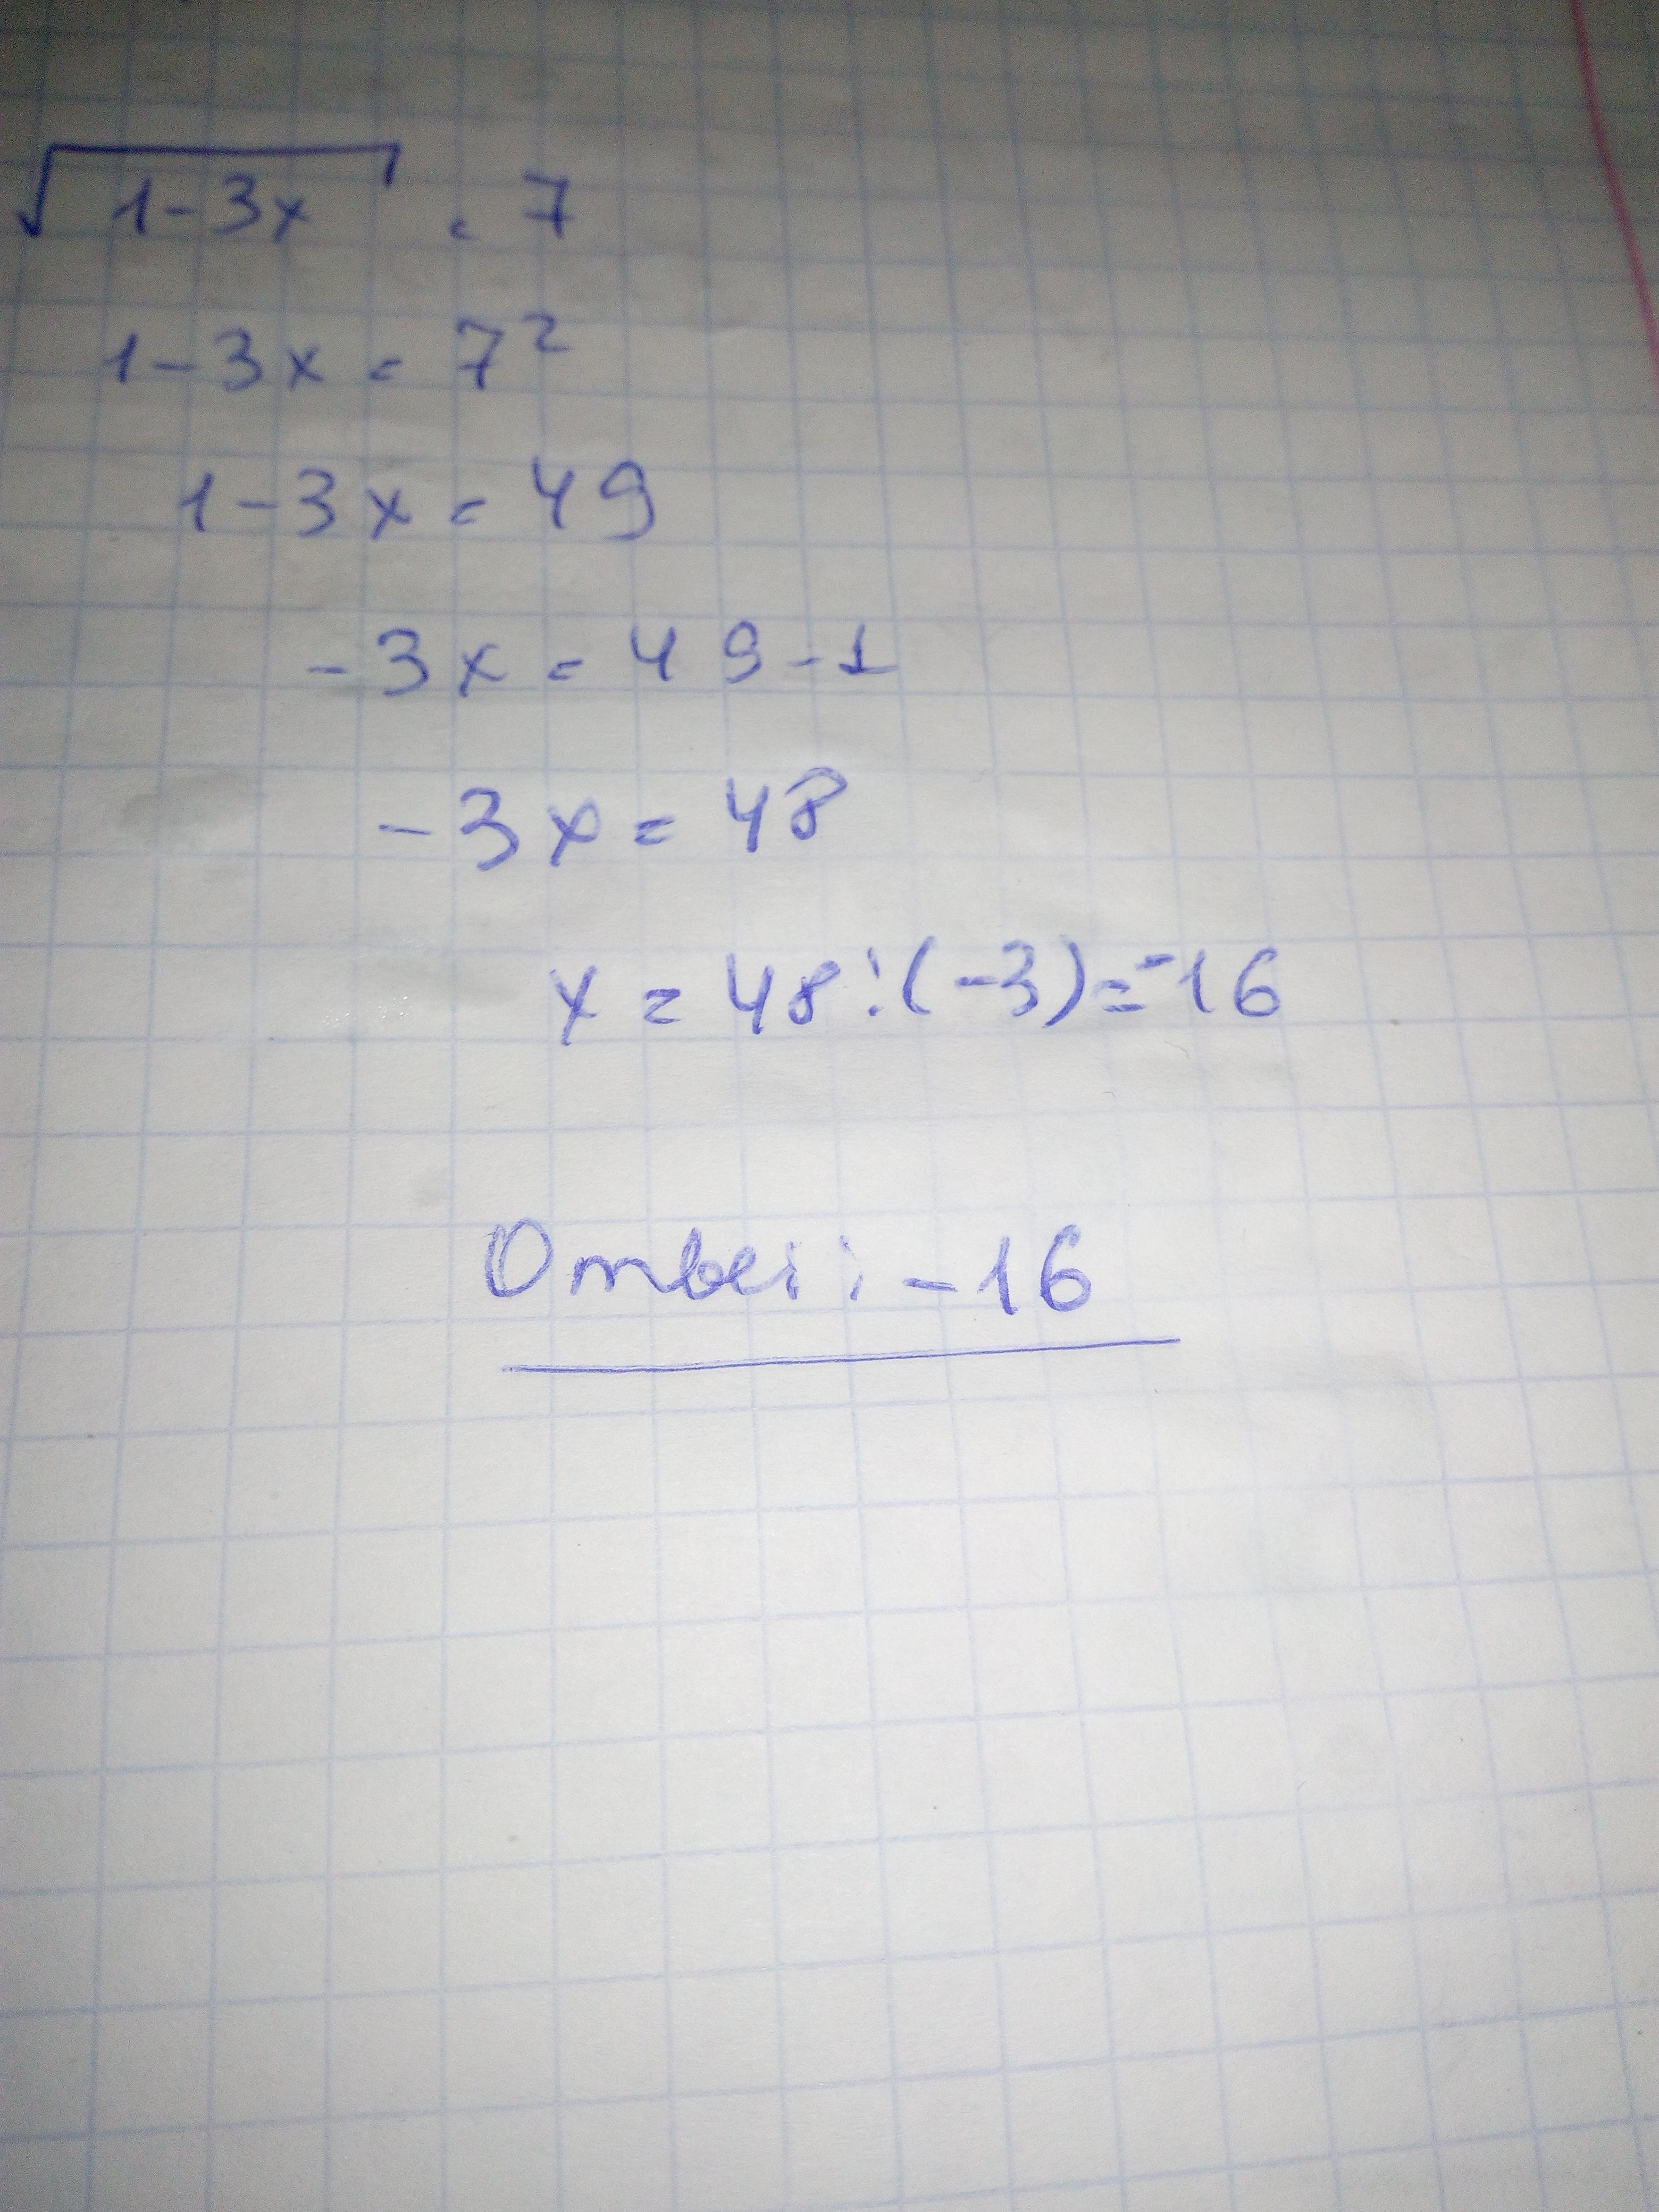 √1-3x = 7
1-3x = 7²
1-3x = 49
-3x = 49-1
-3x = 48
x = 48:(-3)=-16
Ответ: -16